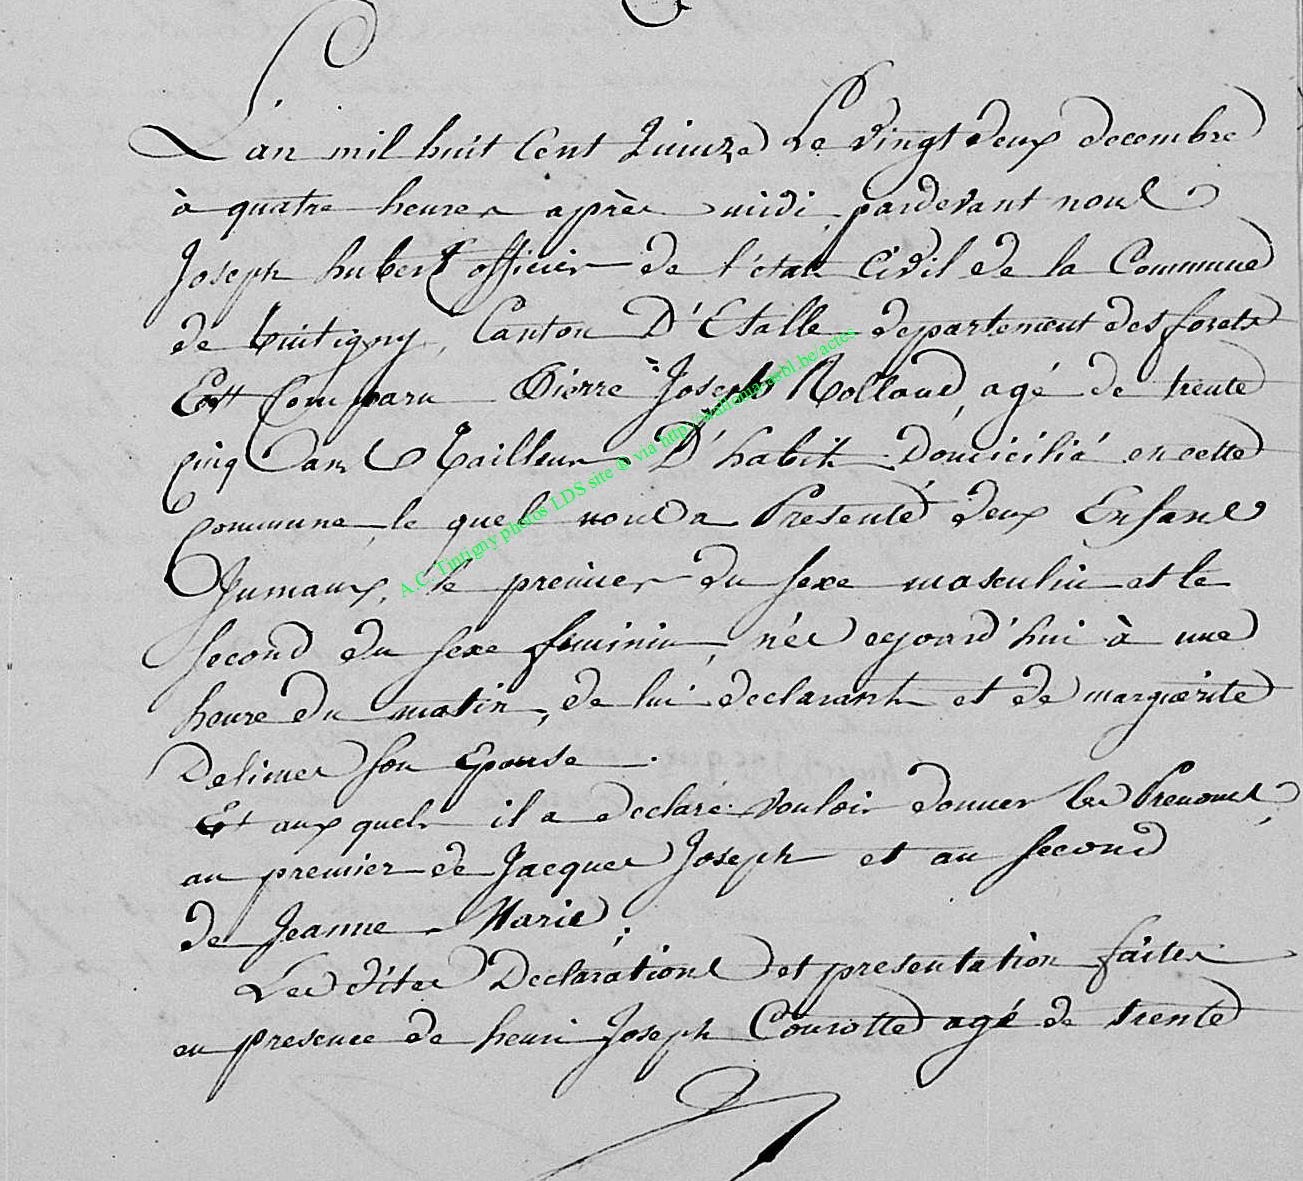 L'an mil huit Cent Quinze Le Vingt deux decembre
à quatre heures après midi pardevant nous
Joseph hubert officier de l'état Civil de la Commune
de tintigny, Canton D'Etalle departement des forets
Est Comparu Pierre Joseph Rolland, agé de trente
cinq ans Tailleur D'habit Domicilié en cette
commune, le quel nous a Presenté deux Enfans
Jumaux, le premier du sexe masculin et le
second du sexe feminin, nés cejourd'hui à une
heure du matin, de lui declarant et de margueritte
son Epouse.
Et aux quels il a declaré vouloir donner les Prenoms,
au premier de Jacques Joseph et au second
de Jeanne Marie;
Les dites Declarations et presentation faites
en presence de henri Joseph Courotte agé de trente
A.C. Tintigny photos LDS site ® via http://
asbl.be/actes